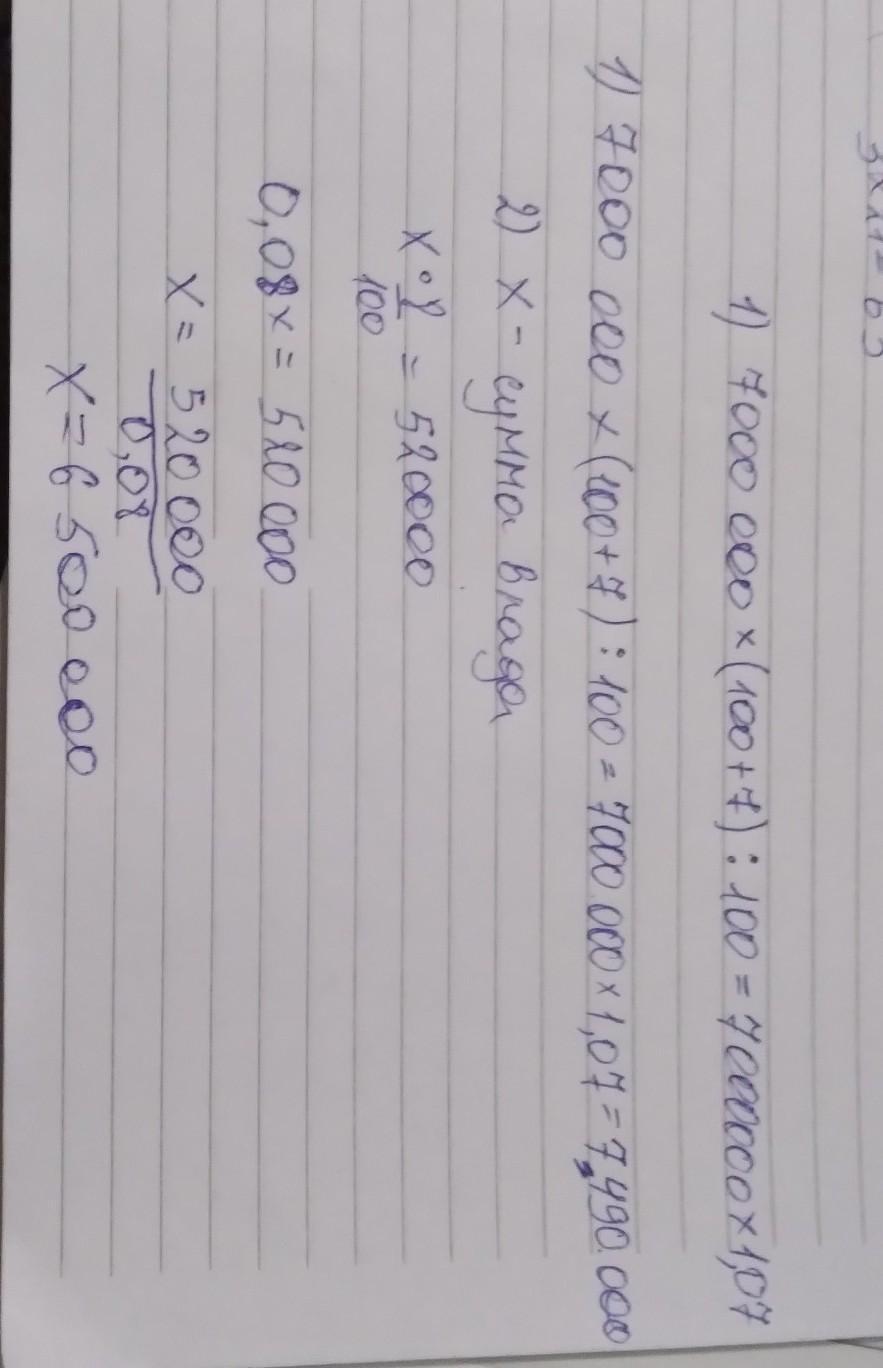 1) 7000 000 × (100+7) : 100 = 7000000 × 1,07
1) 7000 000 × (100+7) : 100 = 7000 000 × 1,07 = 7,490.000
2) х - сумма влада
х • 8/100 = 520000
0,08х = 520 000
х = 520 000/0,08
х = 6 500 000